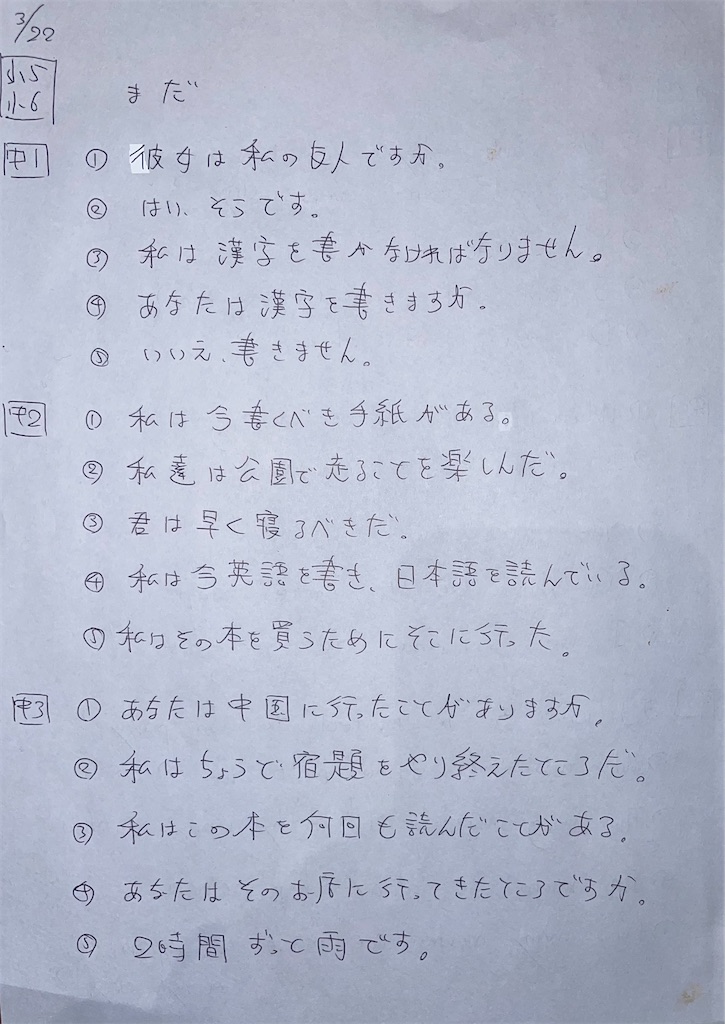 3/22
小5
小6
まだ
中1 ① 彼女は私の友人ですか。
② はい、そうです。
③ 私は漢字を書かなければなりません。
④ あなたは漢字を書きますか。
⑤ いいえ、書きません。
中2 ① 私は今書くべき手紙がある。
② 私達は公園で走ることを楽しんだ。
③ 君は早く寝るべきだ。
④ 私は今英語を書き、日本語を読んでいる。
⑤ 私はその本を買うためにそこに行った。
中3 ① あなたは中国に行ったことがありますか。
② 私はちょうど宿題をやり終えたところだ。
③ 私はこの本を何回も読んだことがある。
④ あなたはそのお店に行ってきたところですか。
⑤ 2時間ずっと雨です。